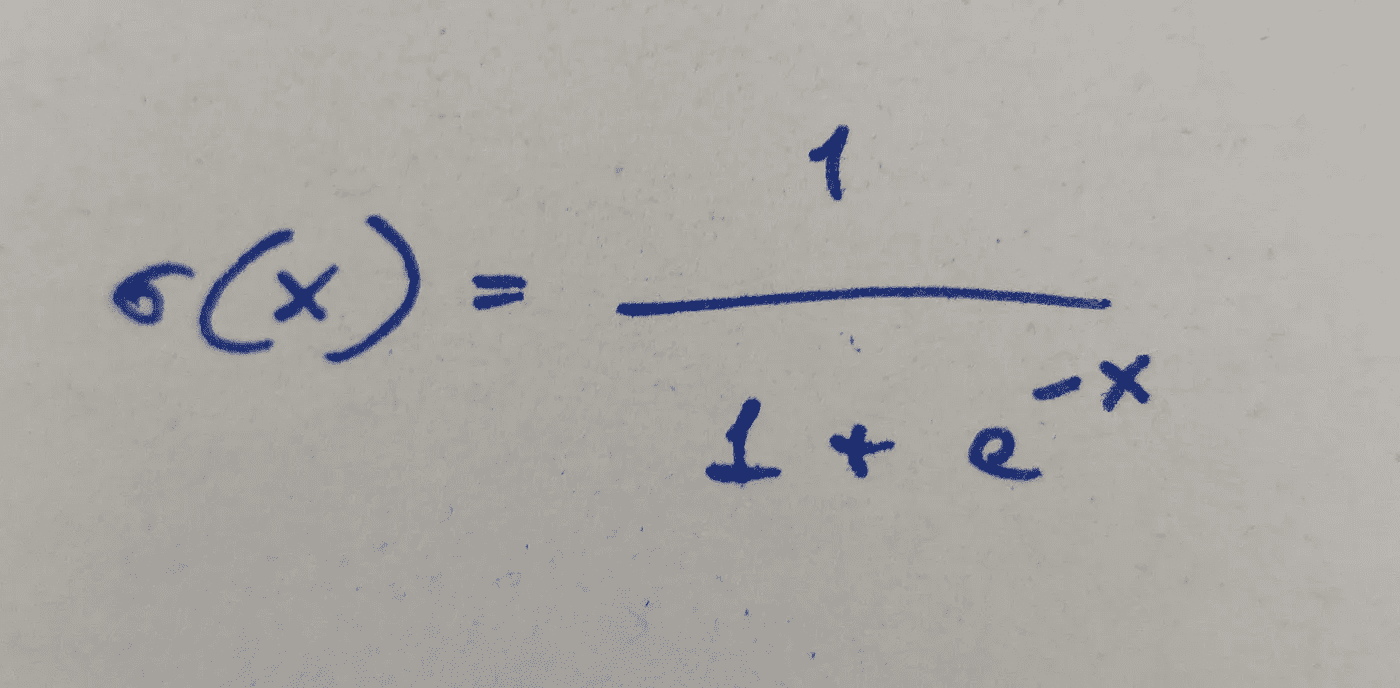 σ(x) = 1 / (1 + e^{-x})